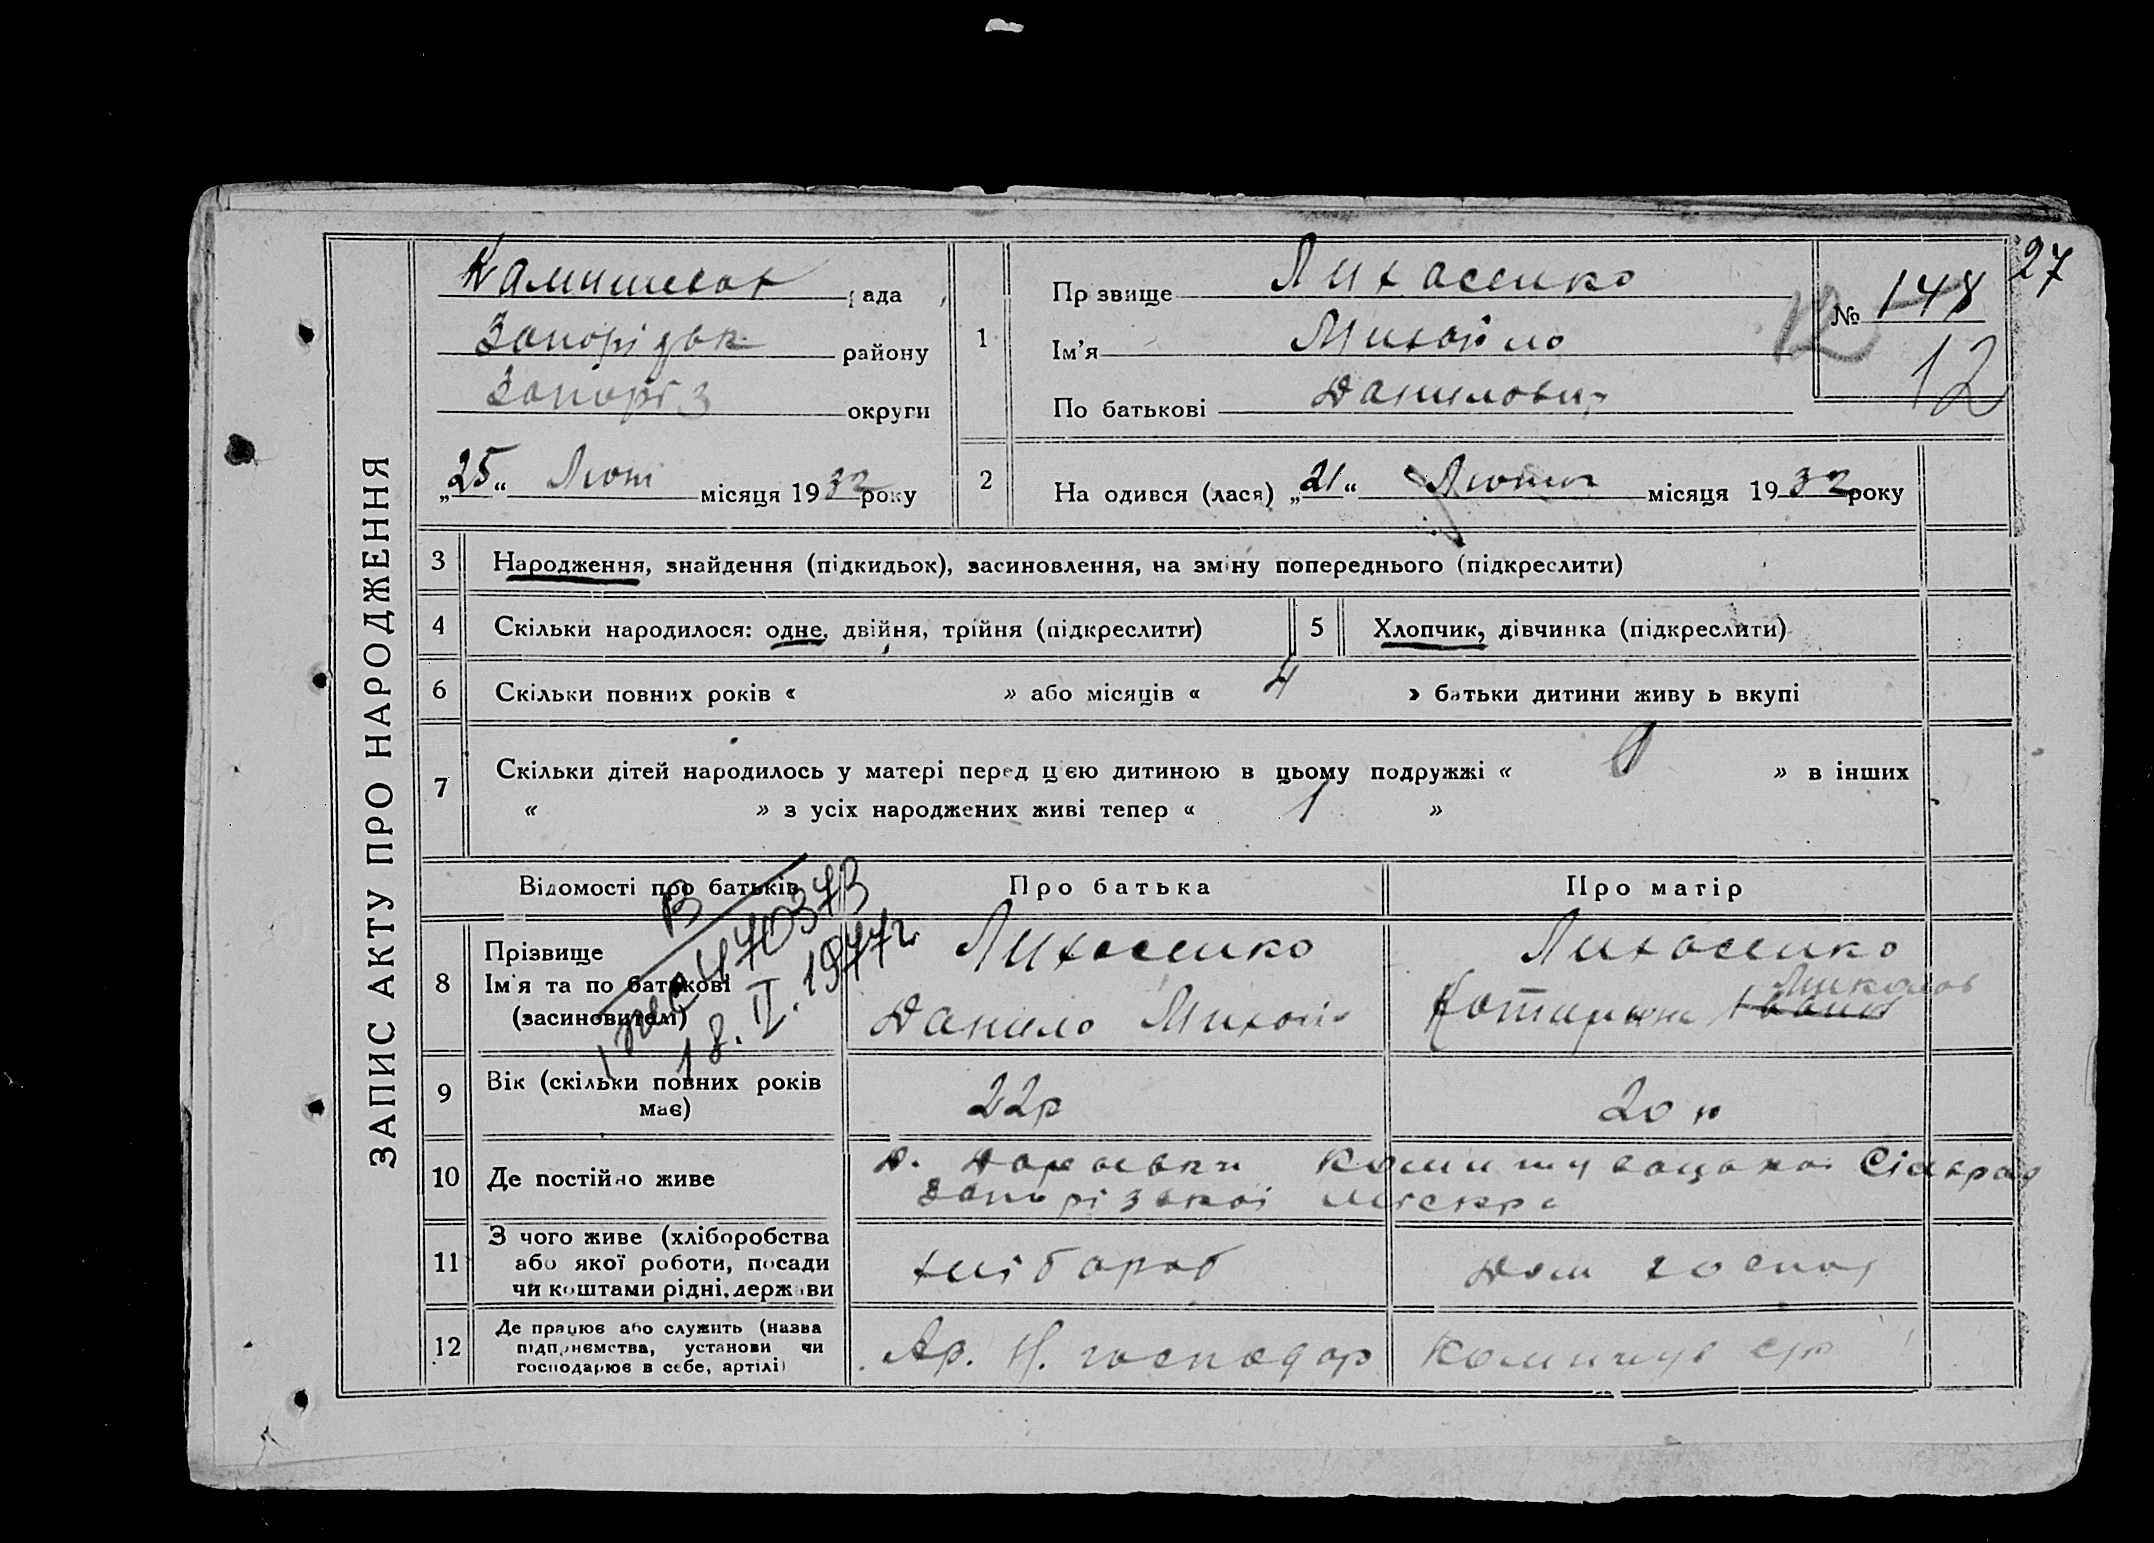 27
ЗАПИС АКТУ ПРО НАРОДЖЕННЯ
рада
Запорізьк району
Запоріз округи
„25“ Лют місяця 1932 року
1
Прізвище Лихосенко
Ім’я Михайло
По батькові Данилович
№ 148
12
12
2
На одився (лася) „21“ Лютого місяця 1932 року
3 Народження, знайдення (підкидьок), засиновлення, на зміну попереднього (підкреслити)
4 Скільки народилося: одне, двійня, трійня (підкреслити)
5 Хлопчик, дівчинка (підкреслити)
6 Скільки повних років « » або місяців « 4 » батьки дитини живу ь вкупі
7 Скільки дітей народилось у матері перед цією дитиною в цьому подружжі « » в інших
« » з усіх народжених живі тепер « 1 »
Відомості про батьків Про батька Про матір
8 Прізвище
Ім’я та по батькові
(засиновителі)
470373
18. II. 1977 г.
Лихосенко
Данило Михай
Лихосенко
Миколов
Катирина Іванів
9 Вік (скільки повних років
має)
22р
20 р
10 Де постійно живе
Сільрад
Запорізької міскр
11 З чого живе (хліборобства
або якої роботи, посади
чи коштами рідні, держави
хлібороб
Дом госпо
12 Де працює або служить (назва
підприємства, установи чи
господарює в себе, артілі)
господар